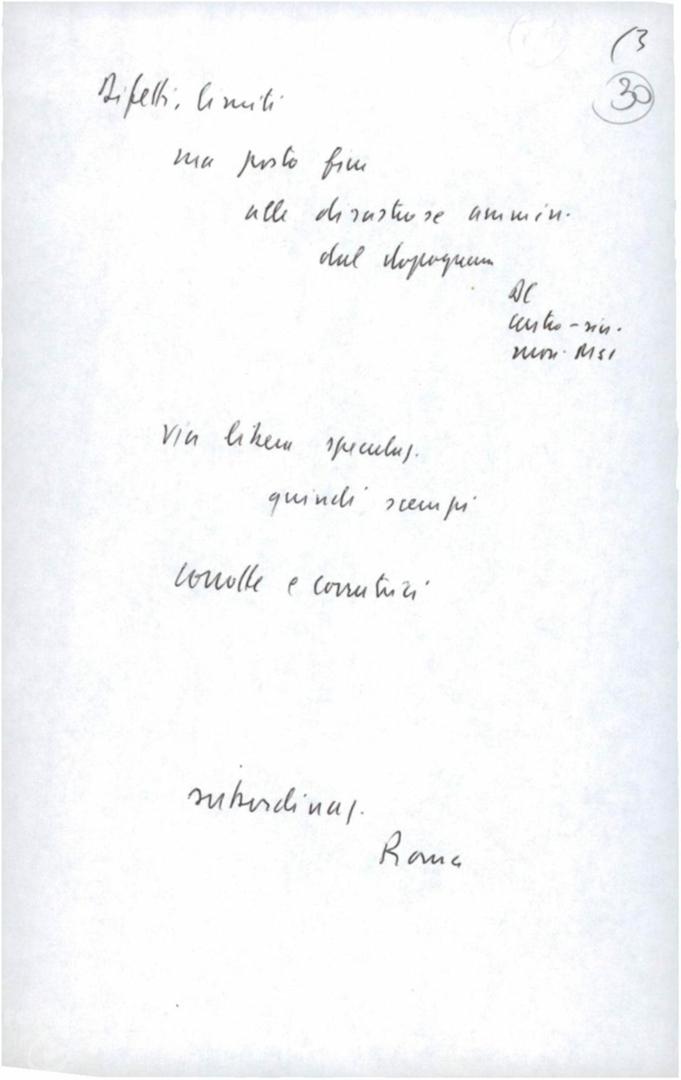 13
30
Difetti, limiti
ma posto fine
alle disastrose ammin.
dal dopoguerra
DC
centro-sin.
mon. MSI
via libera speculaz.
quindi scempi
corrotte e corruttrici
subordinaz.
Roma